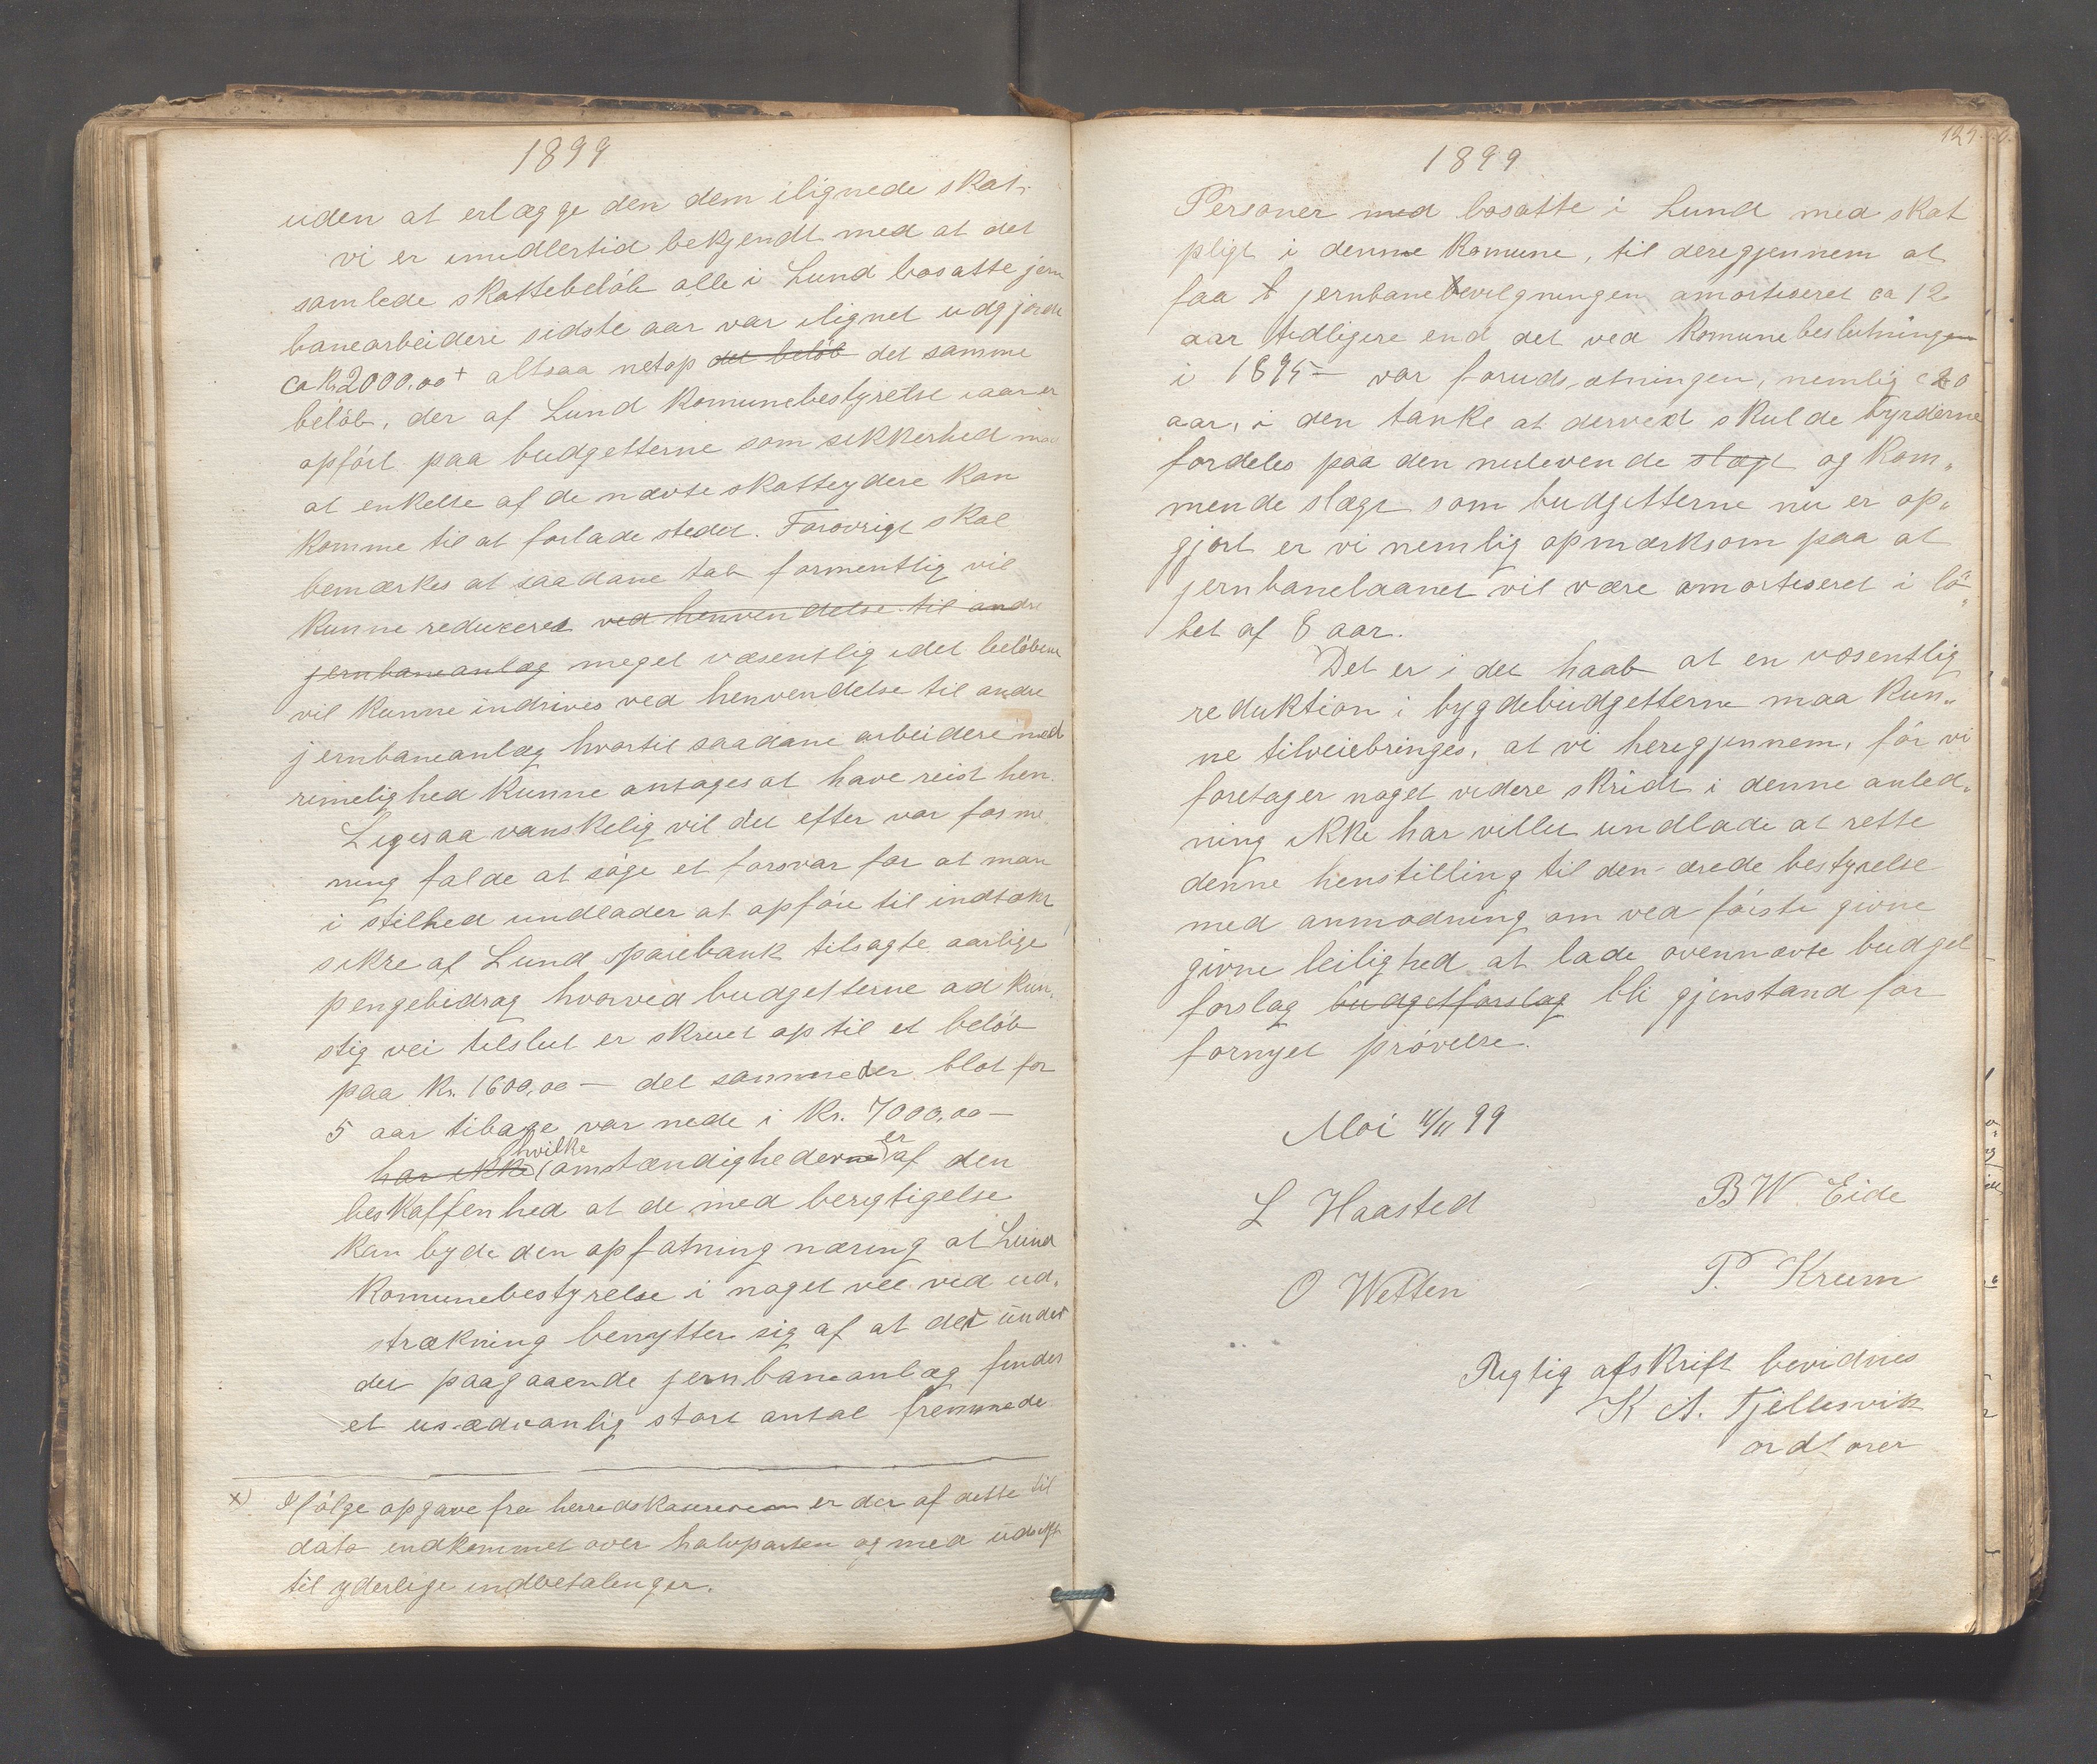 1899
uden at erlægge den dem ilignede skat.
vi er imidlertid bekjendt med at det
samlede skattebeløb alle i Lund bosatte jern
banearbeidere sidste aar var ilignet udgjorde
ca Kr 2000,00 + altsaa netop det beløb det samme
beløb, der af Lund Komunebestyrelse iaar er
opført paa budgetterne som sikkerhed mod
at enkelte af de nævte skatteydere kan
komme til at forlade stedet. Forøvrigt skal
bemærkes at saadane tab formentlig vil
kunne reduceres ved henvendelse til andre
jernbaneanlæg meget væsentlig idet beløbene
vil kunne inddrives ved henvendelse til andre
jernbaneanlæg hvortil saadane arbeidere med
rimelighed kunne antages at have reist hen.
Ligesaa vanskelig vil det efter vor forme
ning falde at søge et forsvar for at man
i stilhed undlader at opføre til indtækt
sikre af Lund Sparebank tilsagte aarlige
pengebidrag hvorved budgetterne ad kun-
stig vei tilslut er skruet op til et beløb
paa Kr. 1600,00 — det samme der blot for
5 aar tilbage var nede i Kr. 7000,00 —
hvilke er
har ikke omstændighederne af den
beskaffenhed at de med berigtigelse
kan byde den opfatning næring at Lund
Komunebestyrelse i noget vil ved ud-
strækning benytter sig af at der under
det paagaaende jernbaneanlæg findes
et usædvanlig stort antal fremmede
x) Ifølge opgave fra herredskassereren er der af dette til
dato indkommet over halvparten og med udsigt
til yderlige indbetalinger.
1899
Personer med bosatte i Lund med skat
pligt i denne Komune, til deregjennem at
faa jernbanebevilgningen amortiseret ca 12
aar tidligere end det ved Komunebeslutningen
i 1895 — var forudsætningen, nemlig 20
aar, i den tanke at derved skulde byrderne
fordeles paa den nulevende slægt og kom-
mende slægt som budgetterne nu er op-
gjort er vi nemlig opmærksom paa at
jernbanelaanet vil være amortiseret i lø-
bet af 8 aar.
Det er i det haab at en væsentlig
reduktion i bygdebudgetterne maa kun-
ne tilveiebringes, at vi heregjennem, før vi
foretager noget videre skridt i denne anled-
ning ikke har villet undlade at rette
denne henstilling til den ærede bestyrelse
med anmodning om ved første givne
givne leilighed at lade ovennævte budget
forslag budgetforslag bli gjenstand for
fornyet prøvelse.
Moi 10/11 99
L Haasted B W. Eide
O Wetten P. Krum
Rigtig afskrift bevidnes
K A. Fjellesvik
ordfører